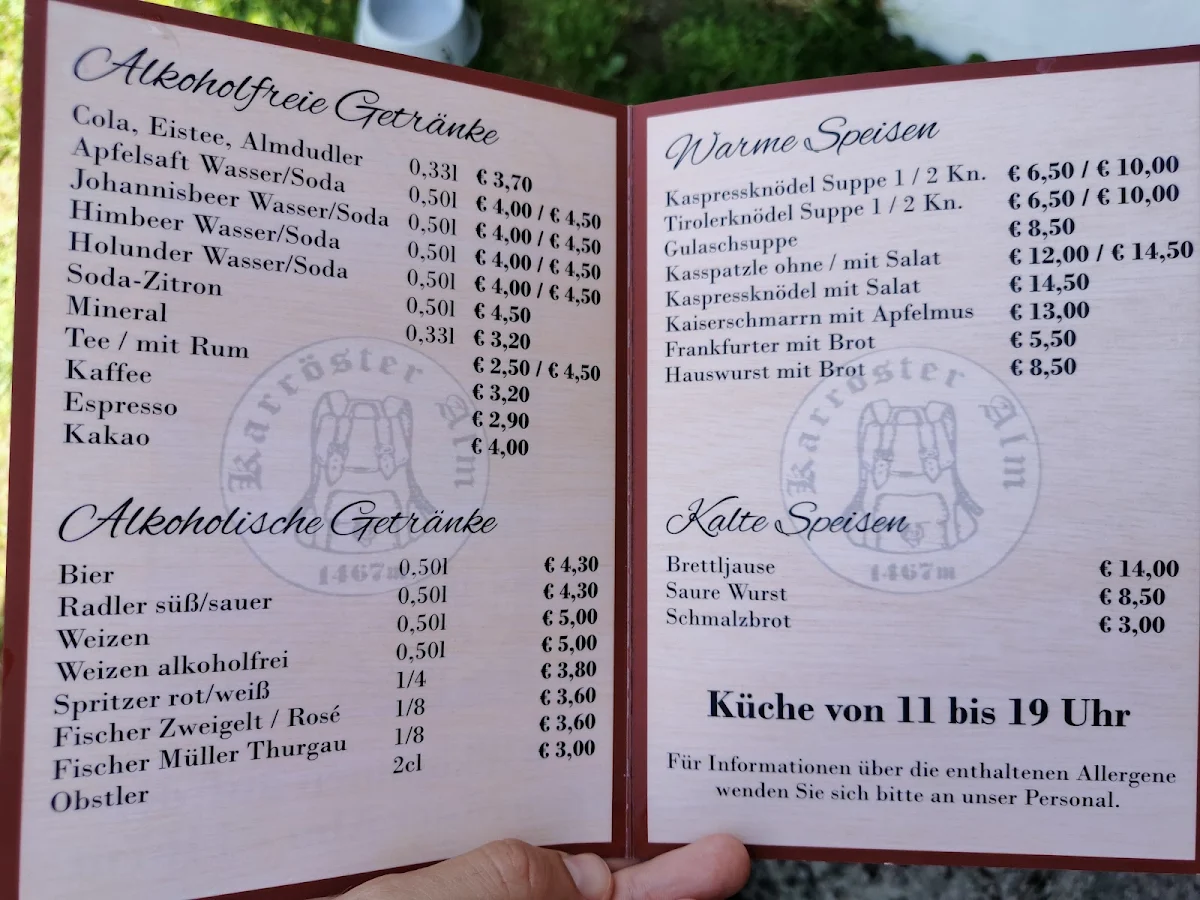 Alkoholfreie Getränke
Cola, Eistee, Almdudler 0,33l € 3,70
Apfelsaft Wasser/Soda 0,50l € 4,00 / € 4,50
Johannisbeer Wasser/Soda 0,50l € 4,00 / € 4,50
Himbeer Wasser/Soda 0,50l € 4,00 / € 4,50
Holunder Wasser/Soda 0,50l € 4,00 / € 4,50
Soda-Zitron 0,50l € 4,50
Mineral 0,33l € 3,20
Tee / mit Rum € 2,50 / € 4,50
Kaffee € 3,20
Espresso € 2,90
Kakao € 4,00
Karröster Alm
1467m
Alkoholische Getränke
Bier 0,50l € 4,30
Radler süß/sauer 0,50l € 4,30
Weizen 0,50l € 5,00
Weizen alkoholfrei 0,50l € 5,00
Spritzer rot/weiß 1/4 € 3,80
Fischer Zweigelt / Rosé 1/8 € 3,60
Fischer Müller Thurgau 1/8 € 3,60
Obstler 2cl € 3,00
Warme Speisen
Kaspressknödel Suppe 1 / 2 Kn. € 6,50 / € 10,00
Tirolerknödel Suppe 1 / 2 Kn. € 6,50 / € 10,00
Gulaschsuppe € 8,50
Kasspatzle ohne / mit Salat € 12,00 / € 14,50
Kaspressknödel mit Salat € 14,50
Kaiserschmarrn mit Apfelmus € 13,00
Frankfurter mit Brot € 5,50
Hauswurst mit Brot € 8,50
Karröster Alm
1467m
Kalte Speisen
Brettljause € 14,00
Saure Wurst € 8,50
Schmalzbrot € 3,00
Küche von 11 bis 19 Uhr
Für Informationen über die enthaltenen Allergene
wenden Sie sich bitte an unser Personal.